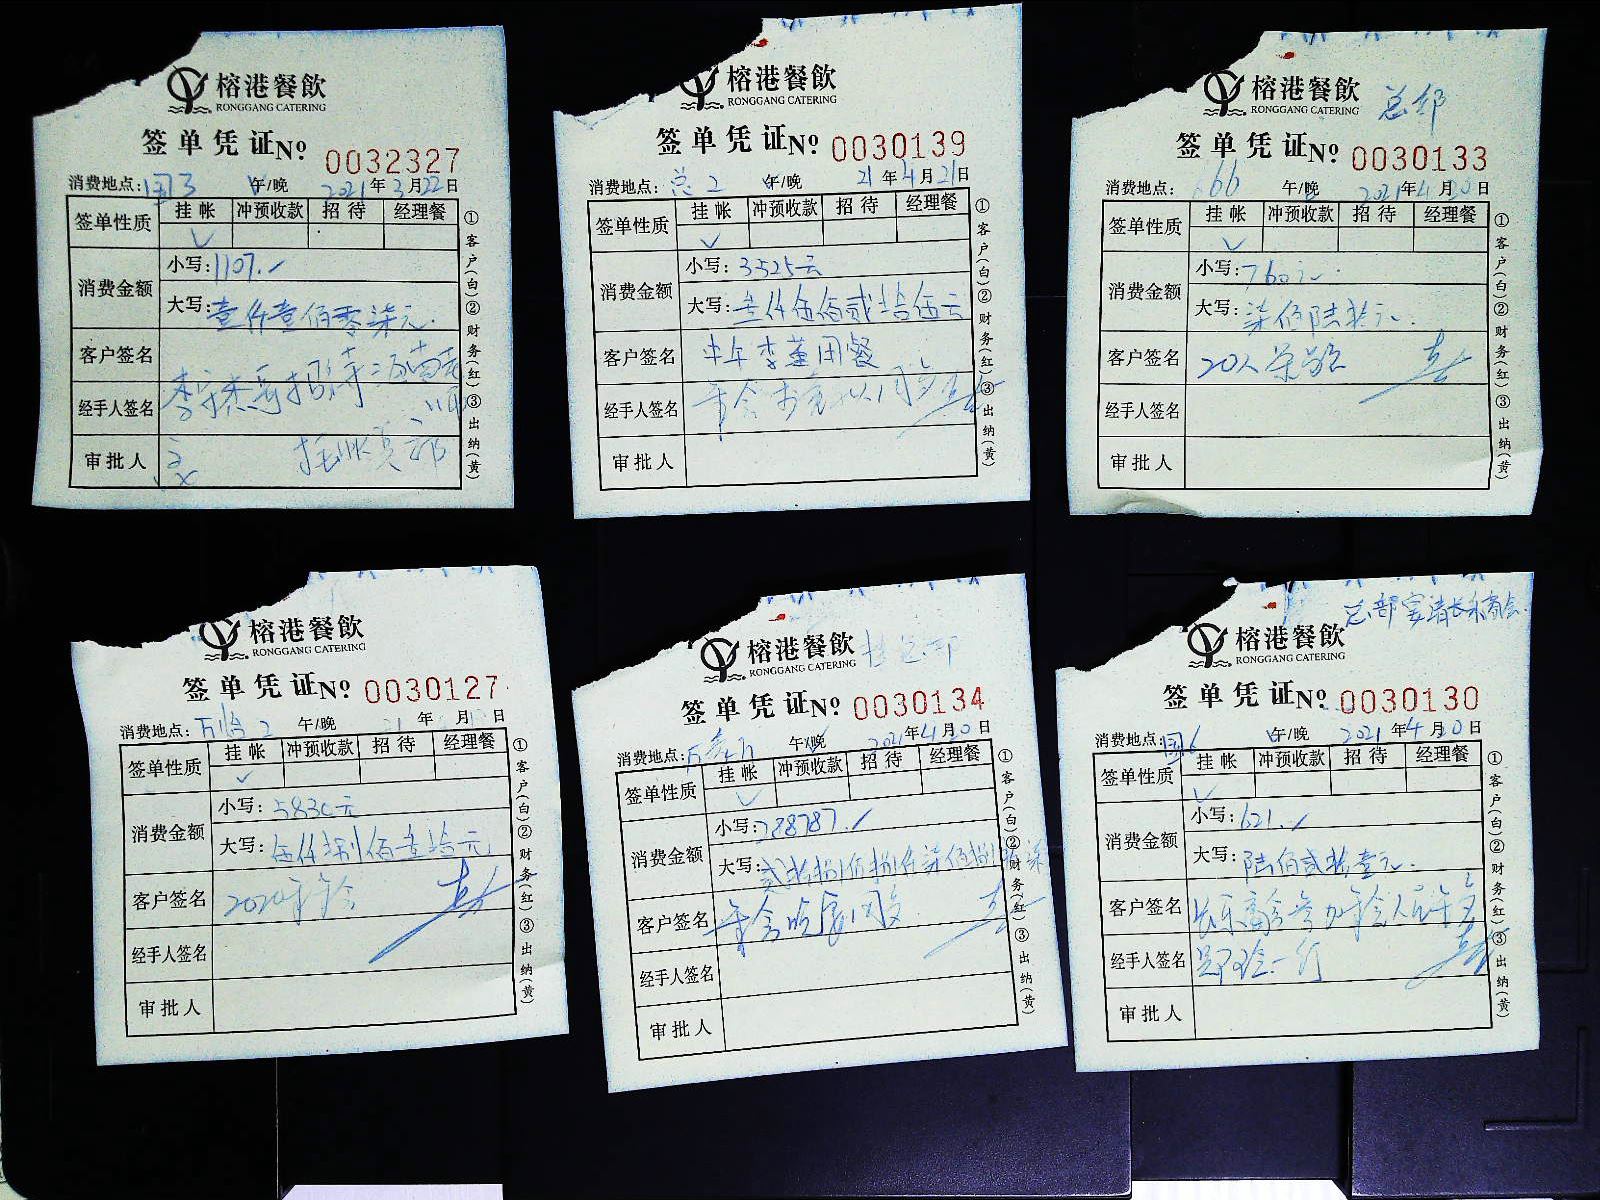 榕港餐飲
RONGGANG CATERING
签单凭证№ 0032327
消费地点: 午/晚 2021年3月22日
签单性质 挂帐 冲预收款 招待 经理餐
✓
消费金额 小写:1107.
大写:壹仟壹佰零柒元.
客户签名
经手人签名
审批人
①客户(白)②财务(红)③出纳(黄)
榕港餐飲
RONGGANG CATERING
签单凭证№ 0030139
消费地点:总2 午/晚 21年4月21日
签单性质 挂帐 冲预收款 招待 经理餐
✓
消费金额 小写:3525元
大写:仟伍佰贰拾伍元
客户签名 李董用餐
经手人签名 年会
审批人
①客户(白)②财务(红)③出纳(黄)
榕港餐飲
RONGGANG CATERING
总部
签单凭证№ 0030133
消费地点:66 午/晚 2021年4月 日
签单性质 挂帐 冲预收款 招待 经理餐
✓
消费金额 小写:760元
大写:柒佰陆拾元.
客户签名 20人
经手人签名
审批人
①客户(白)②财务(红)③出纳(黄)
榕港餐飲
RONGGANG CATERING
签单凭证№ 0030127
消费地点: 2 午/晚 21年 月 日
签单性质 挂帐 冲预收款 招待 经理餐
✓
消费金额 小写:5830元
大写:伍仟捌佰 拾元
客户签名 2020年年会
经手人签名
审批人
①客户(白)②财务(红)③出纳(黄)
榕港餐飲
RONGGANG CATERING
挂总部
签单凭证№ 0030134
消费地点: 午/晚 2021年4月 日
签单性质 挂帐 冲预收款 招待 经理餐
✓
消费金额 小写:288787.
大写:贰拾捌万捌仟柒佰捌拾柒
客户签名 年会
经手人签名
审批人
①客户(白)②财务(红)③出纳(黄)
总部宴请长乐商会
榕港餐飲
RONGGANG CATERING
签单凭证№ 0030130
消费地点:国6 午/晚 2021年4月 日
签单性质 挂帐 冲预收款 招待 经理餐
✓
消费金额 小写:621.
大写:陆佰贰拾壹元.
客户签名 长乐商会参加年会人员午餐
经手人签名 一行
审批人
①客户(白)②财务(红)③出纳(黄)